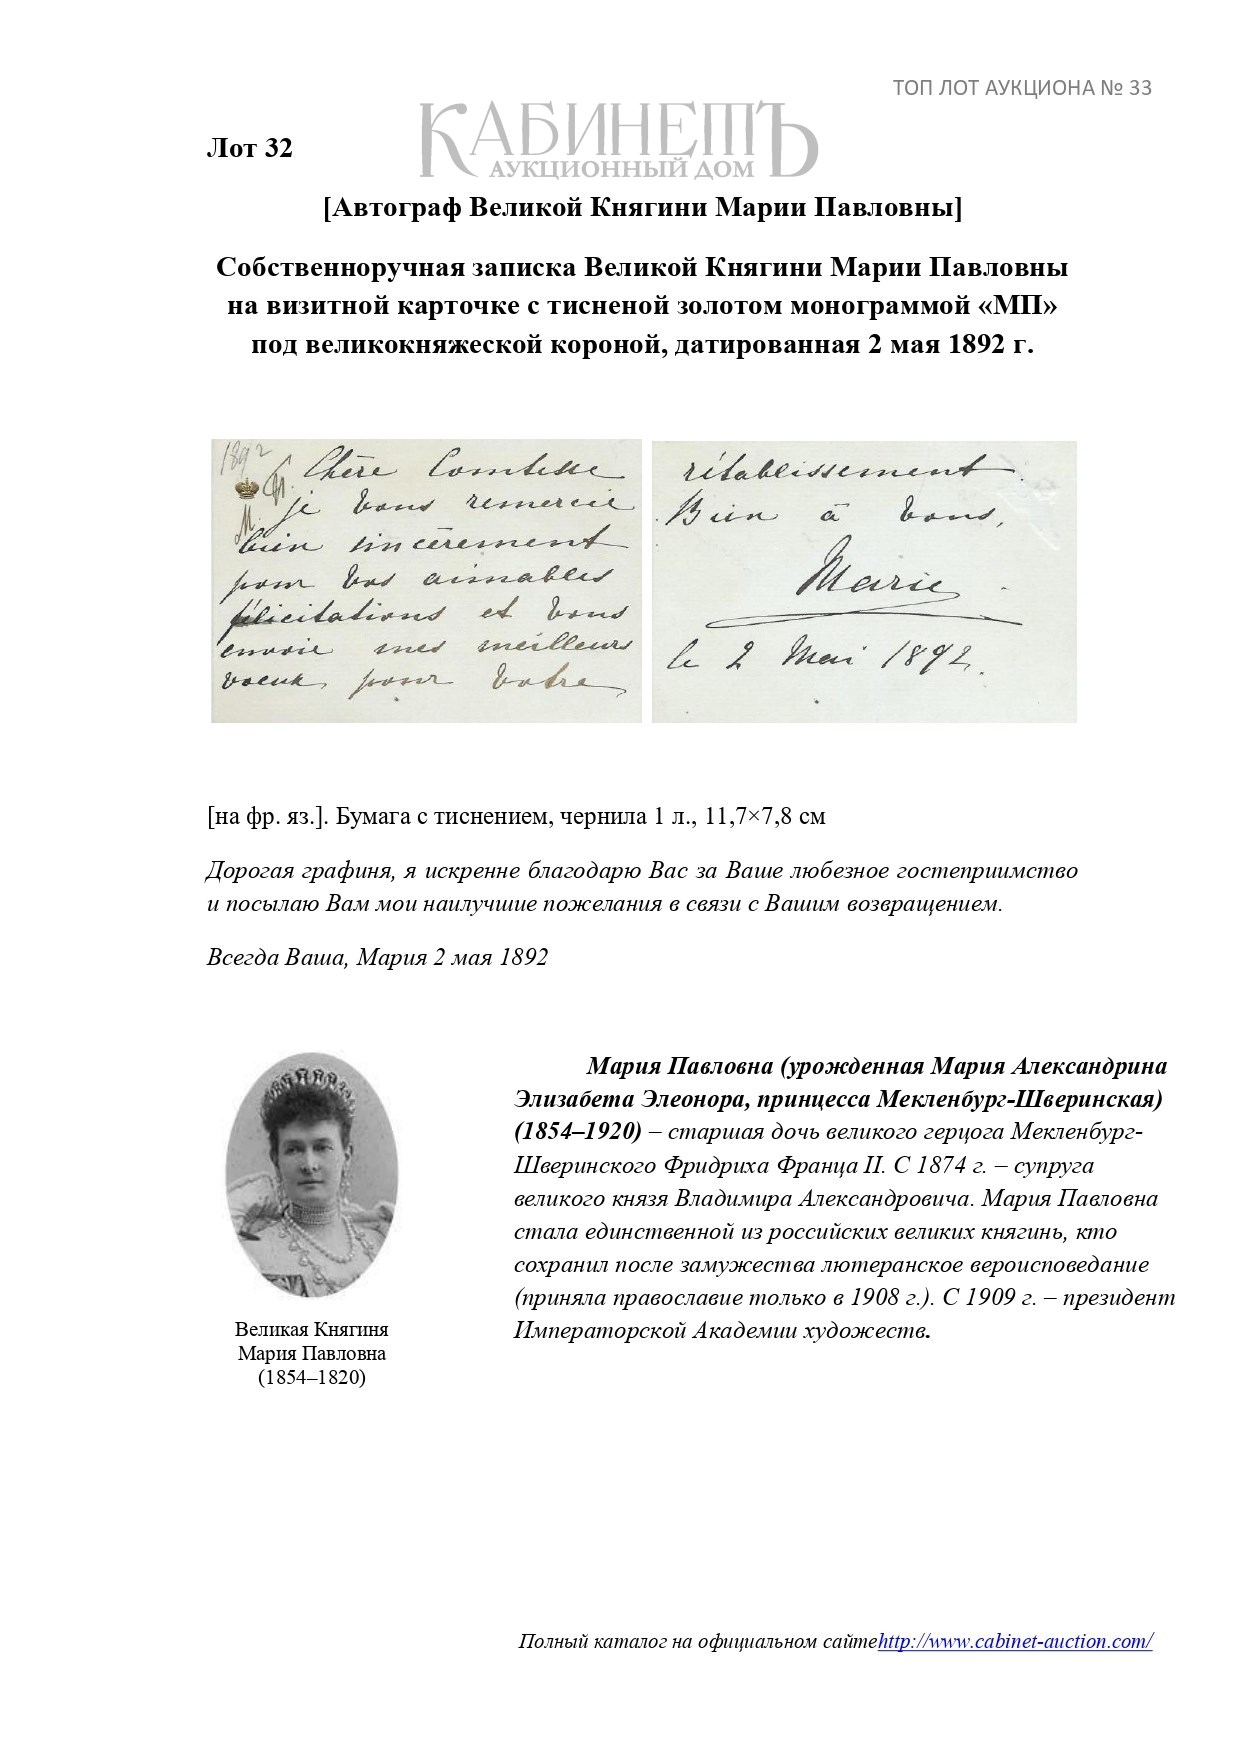 ТОП ЛОТ АУКЦИОНА № 33
КАБИНЕТЪ
АУКЦИОННЫЙ ДОМ
Лот 32
[Автограф Великой Княгини Марии Павловны]
Собственноручная записка Великой Княгини Марии Павловны
на визитной карточке с тисненой золотом монограммой «МП»
под великокняжеской короной, датированная 2 мая 1892 г.
1892
М. П.
Chère Comtesse
je vous remercie
bien sincèrement
pour vos aimables
félicitations et vous
envoie mes meilleurs
voeux pour votre
rétablissement
Bien à vous,
Marie
le 2 Mai 1892.
[на фр. яз.]. Бумага с тиснением, чернила 1 л., 11,7×7,8 см
Дорогая графиня, я искренне благодарю Вас за Ваше любезное гостеприимство
и посылаю Вам мои наилучшие пожелания в связи с Вашим возвращением.
Всегда Ваша, Мария 2 мая 1892
Мария Павловна (урожденная Мария Александрина
Элизабета Элеонора, принцесса Мекленбург-Шверинская)
(1854–1920) – старшая дочь великого герцога Мекленбург-
Шверинского Фридриха Франца II. С 1874 г. – супруга
великого князя Владимира Александровича. Мария Павловна
стала единственной из российских великих княгинь, кто
сохранил после замужества лютеранское вероисповедание
(приняла православие только в 1908 г.). С 1909 г. – президент
Императорской Академии художеств.
Великая Княгиня
Мария Павловна
(1854–1820)
Полный каталог на официальном сайтеhttp://www.cabinet-auction.com/